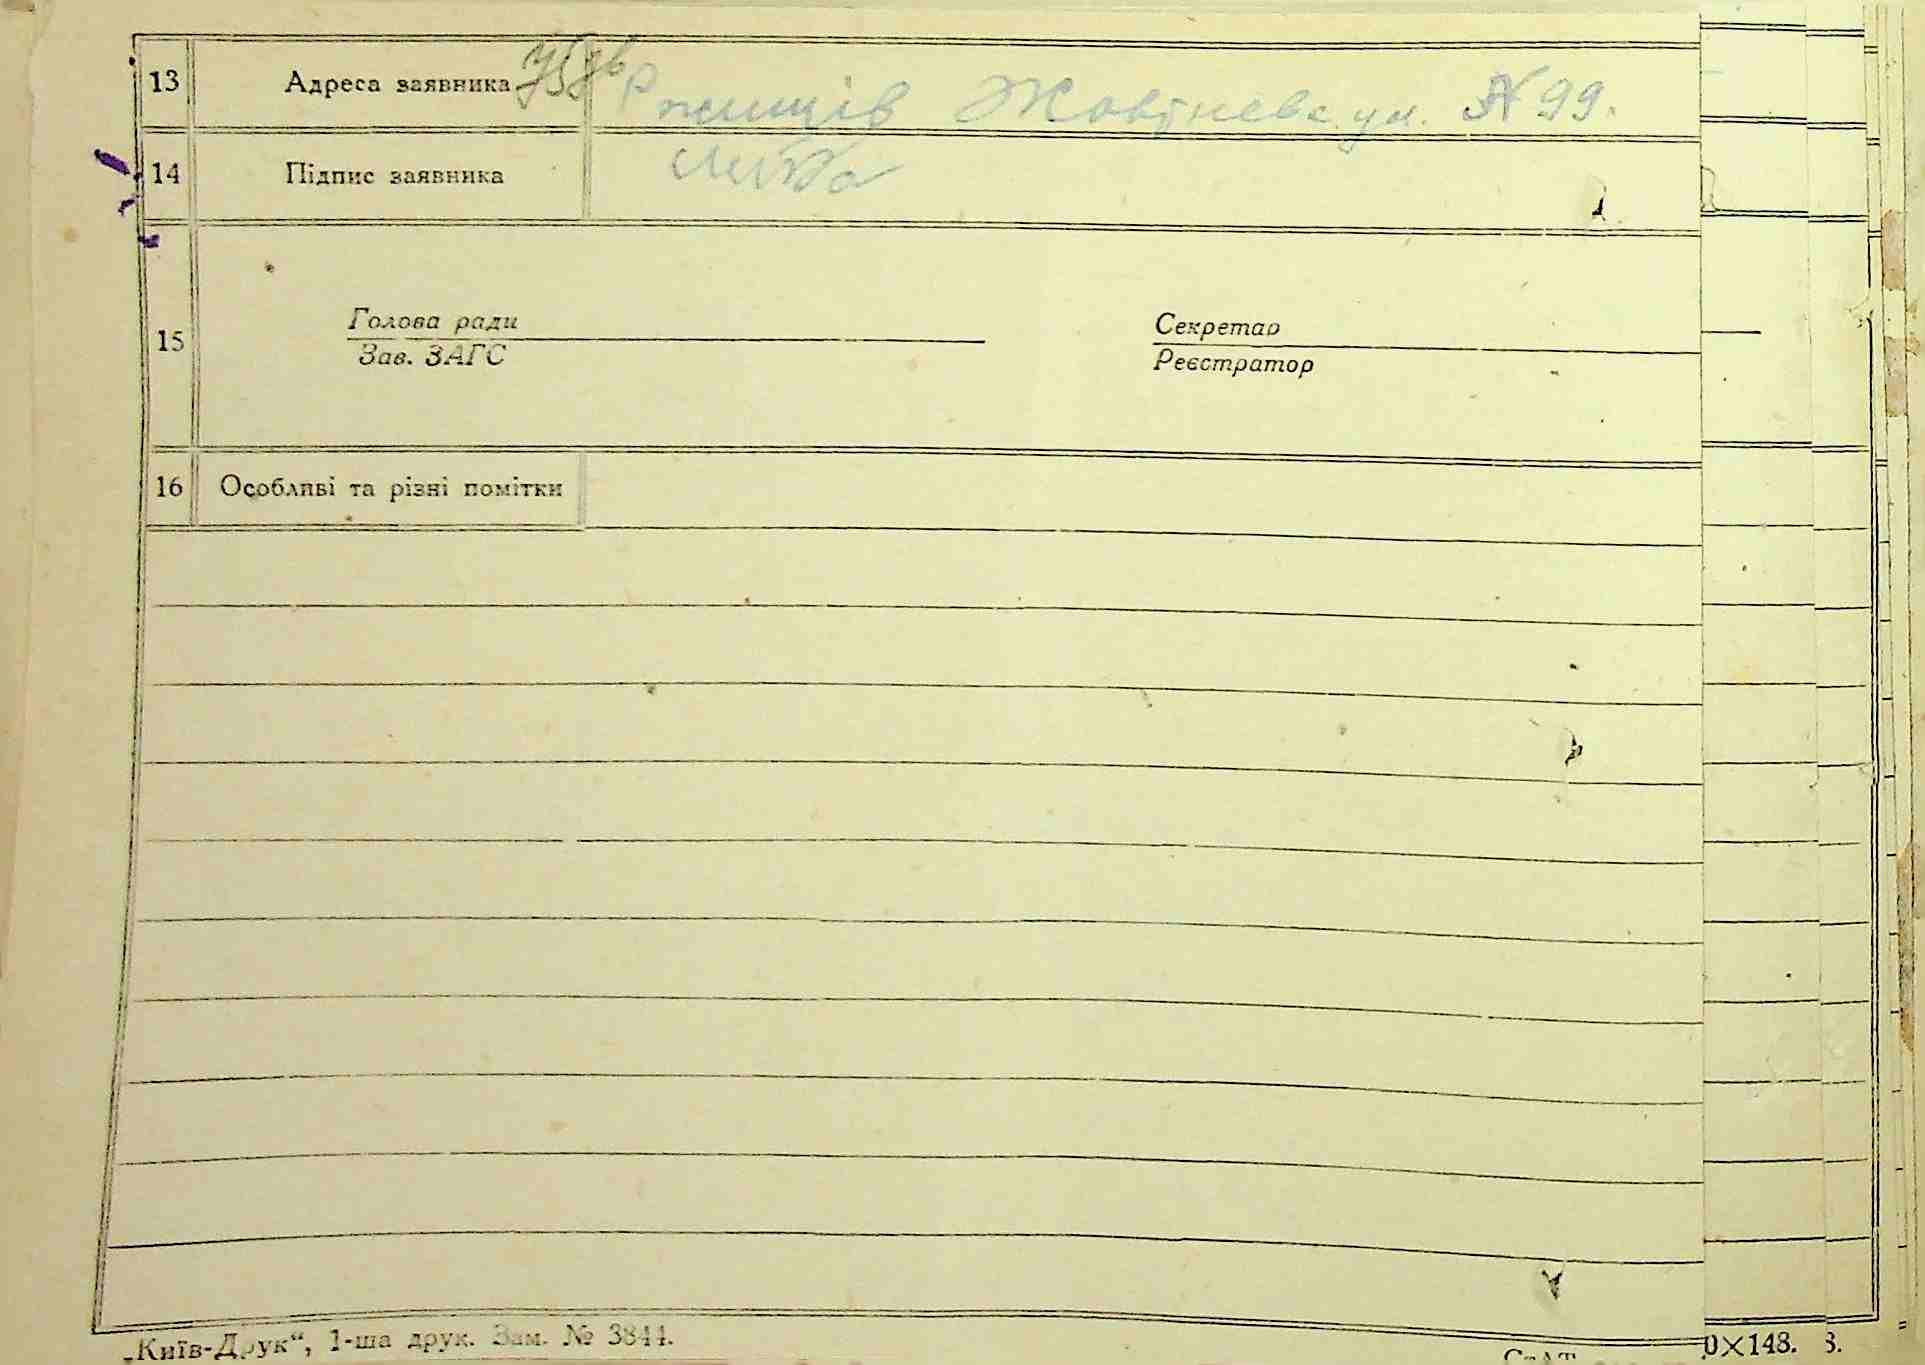 13 Адреса заявника Ржищів Жовтнева ул. № 99.
14 Підпис заявника
Голова ради Секретар
15
Зав. ЗАГС Реєстратор
16 Особливі та різні помітки
„Київ-Друк“, 1-ша друк. Зам. № 3844.
0×148. 8.